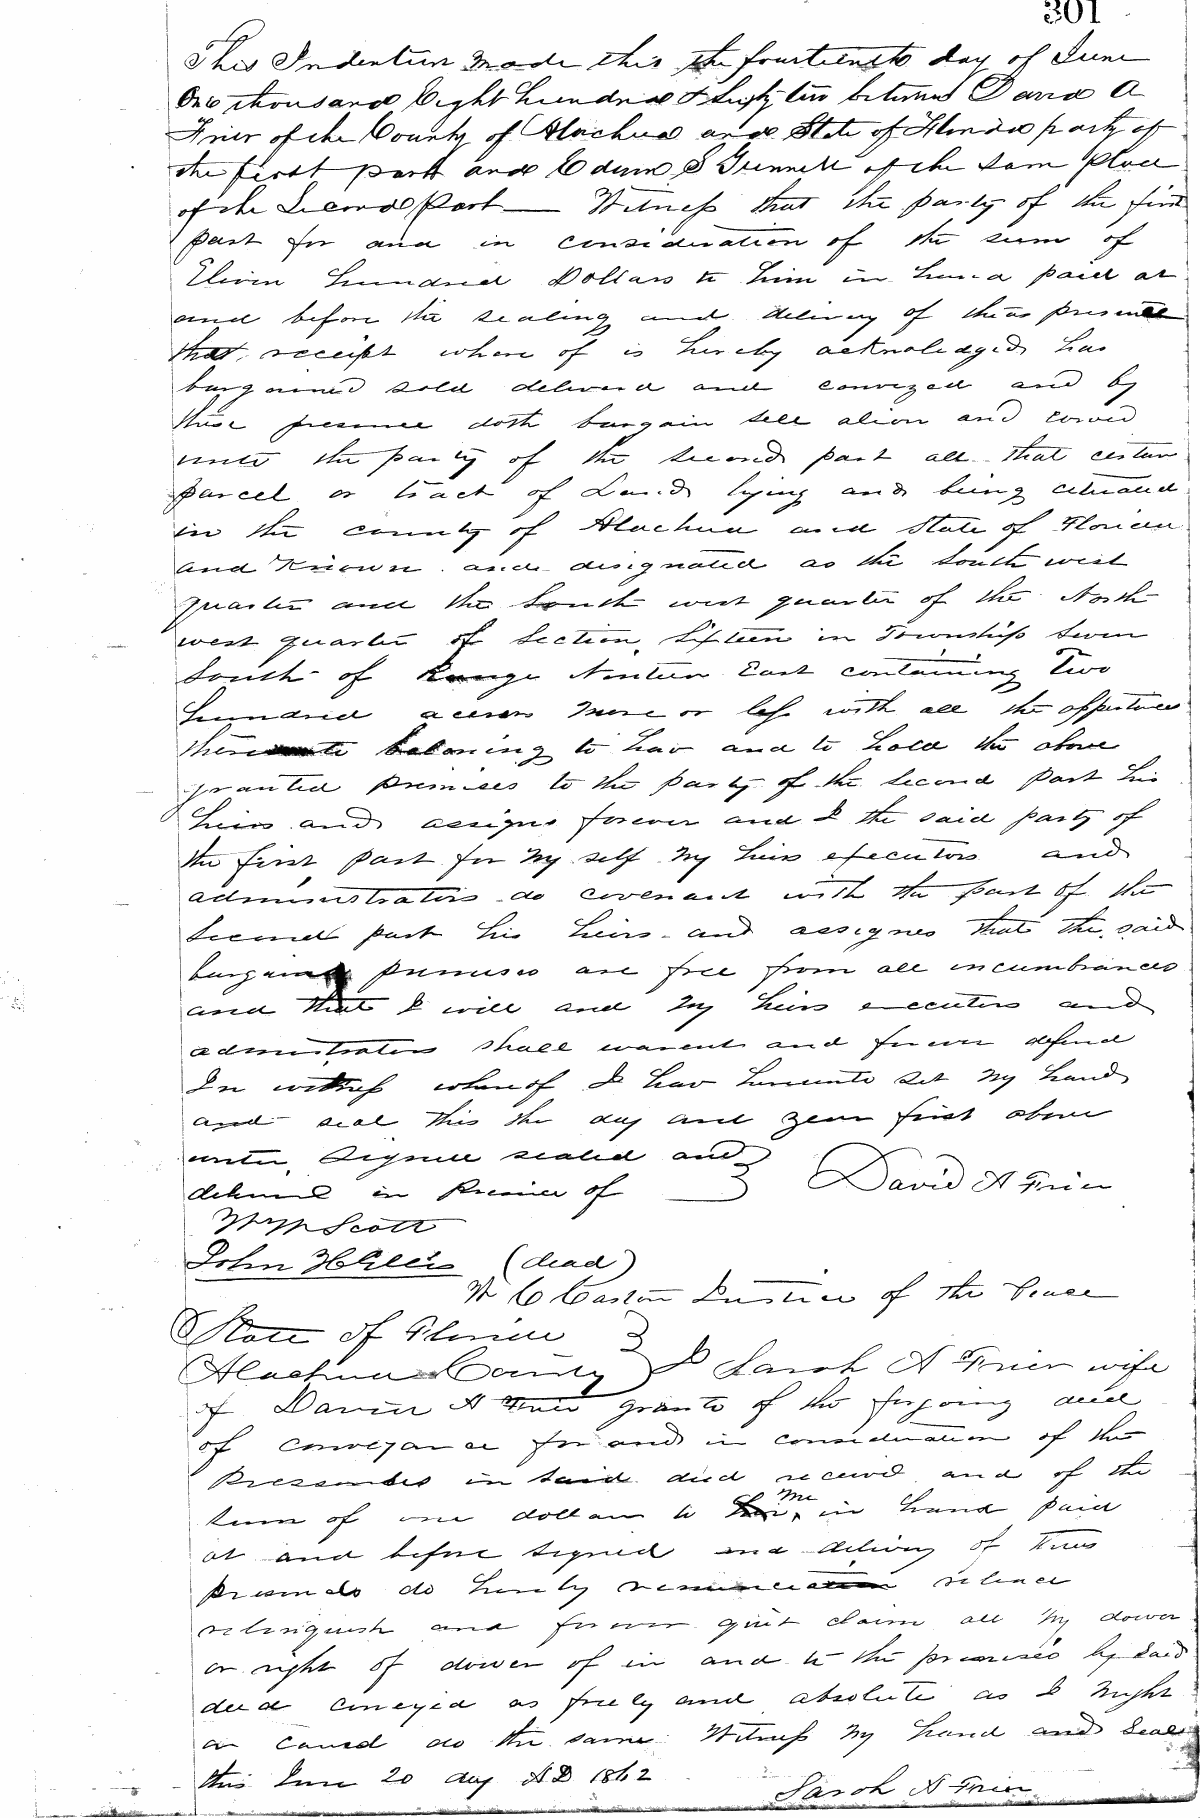 301
This Indenture made this the fourteenth day of June
One thousand Eight hundred & Sixty two between David A
Frier of the County of Alachua and State of Florida party of
the first part and Edwin S Gunnell of the same place
of the Second Part — Witness that the party of the first
part for and in consideration of the sum of
Eleven hundred Dollars to him in hand paid at
and before the sealing and delivery of these presents
that receipt where of is hereby acknoledged has
bargained sold deliverd and conveyed and by
these presence doth bargain sell alien and
unto the party of the second part all that certain
parcel or tract of Land lying and being cituated
in the county of Alachua and State of Florida
and Known and designated as the South west
quarter and the South west quarter of the North
west quarter of Section Sixteen in Township Seven
South of Range Ninteen East containing Two
hundred more or less with all the
beloning to hav and to hold the above
granted premises to the party of the second part his
heirs and assigns forever and I the said party of
the first part for my self my heirs executors and
administrators do covenant with the part of the
second part his heirs and assignes that the said
premises are free from all incumbrances
and that I will and my heirs executors and
shall warent and forever defend
In witness whereof I hav hereunto set my hand
and seal this the day and year first above
Signed sealed and
in Presence of David A Frier
Wm Scott
John (dead)
W C Caston Justice of the Peace
State of Florida
Alachua County I Sarah A Frier wife
of David A Frier of the forgoing deed
of conveyance for and in consideration of the
in said deed received and of the
sum of one dollar to me in hand paid
at and before signed and delivery of
do hereby release
relinquish and forever quit claim all my dower
or right of dower of in and to the premises by said
deed conveyed as freely and absolute as I might
or do the same Witness my hand and Seal
this June 20 day AD 1862
Sarah A Frier